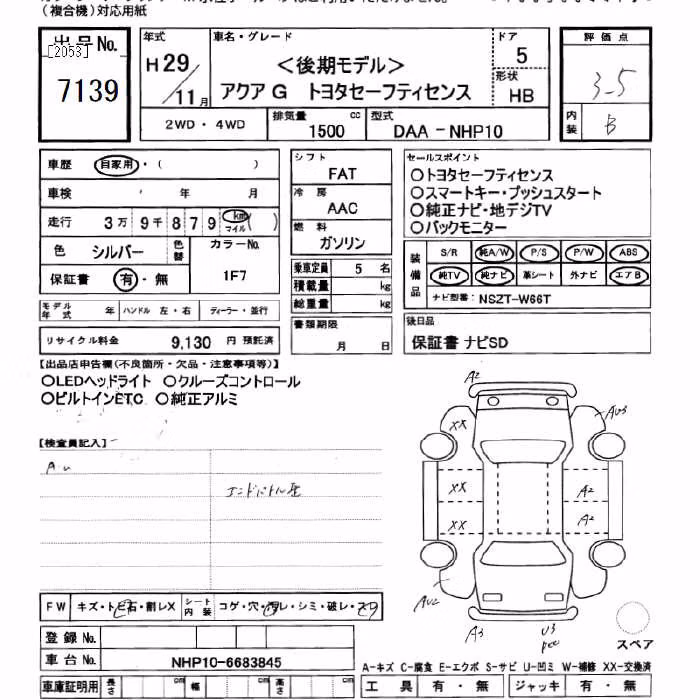 （複合機）対応用紙
出品No.
[2053]
7139
年式
H29/11月
車名・グレード
＜後期モデル＞
アクア G トヨタセーフティセンス
ドア
5
形状
HB
評価点
3.5
内装
B
2WD・4WD
排気量 1500 cc
型式 DAA-NHP10
車歴 自家用・（ ）
車検 年 月
走行 3万9千879 km マイル ( )
色 シルバー 色替
カラーNo. 1F7
保証書 有・無
モデル年式 年 ハンドル 左・右 ディーラー・並行
リサイクル料金 9,130 円 預託済
シフト
FAT
冷房
AAC
燃料
ガソリン
乗車定員 5 名
積載量 kg
総重量 kg
書類期限
月 日
セールスポイント
○トヨタセーフティセンス
○スマートキー・プッシュスタート
○純正ナビ・地デジTV
○バックモニター
装備品
S/R 純A/W P/S P/W ABS
純TV 純ナビ 革シート 外ナビ エアB
ナビ型番: NSZT-W66T
後日品
保証書 ナビSD
【出品店申告欄(不良箇所・欠品・注意事項等)】
○LEDヘッドライト ○クルーズコントロール
○ビルトインETC ○純正アルミ
【検査員記入】
A.u
A2
AU3
XX
XX
A2
XX
A2
AU2
A3
U3
スペア
FW キズ・トビ石・割レX シート内装 コゲ・穴・汚レ・シミ・破レ・スレ
登録No.
車台No. NHP10-6683845
A-キズ C-腐食 E-エクボ S-サビ U-凹ミ W-補修 XX-交換済
車庫証明用 長さ cm 幅 cm 高さ cm
工具 有・無 ジャッキ 有・無